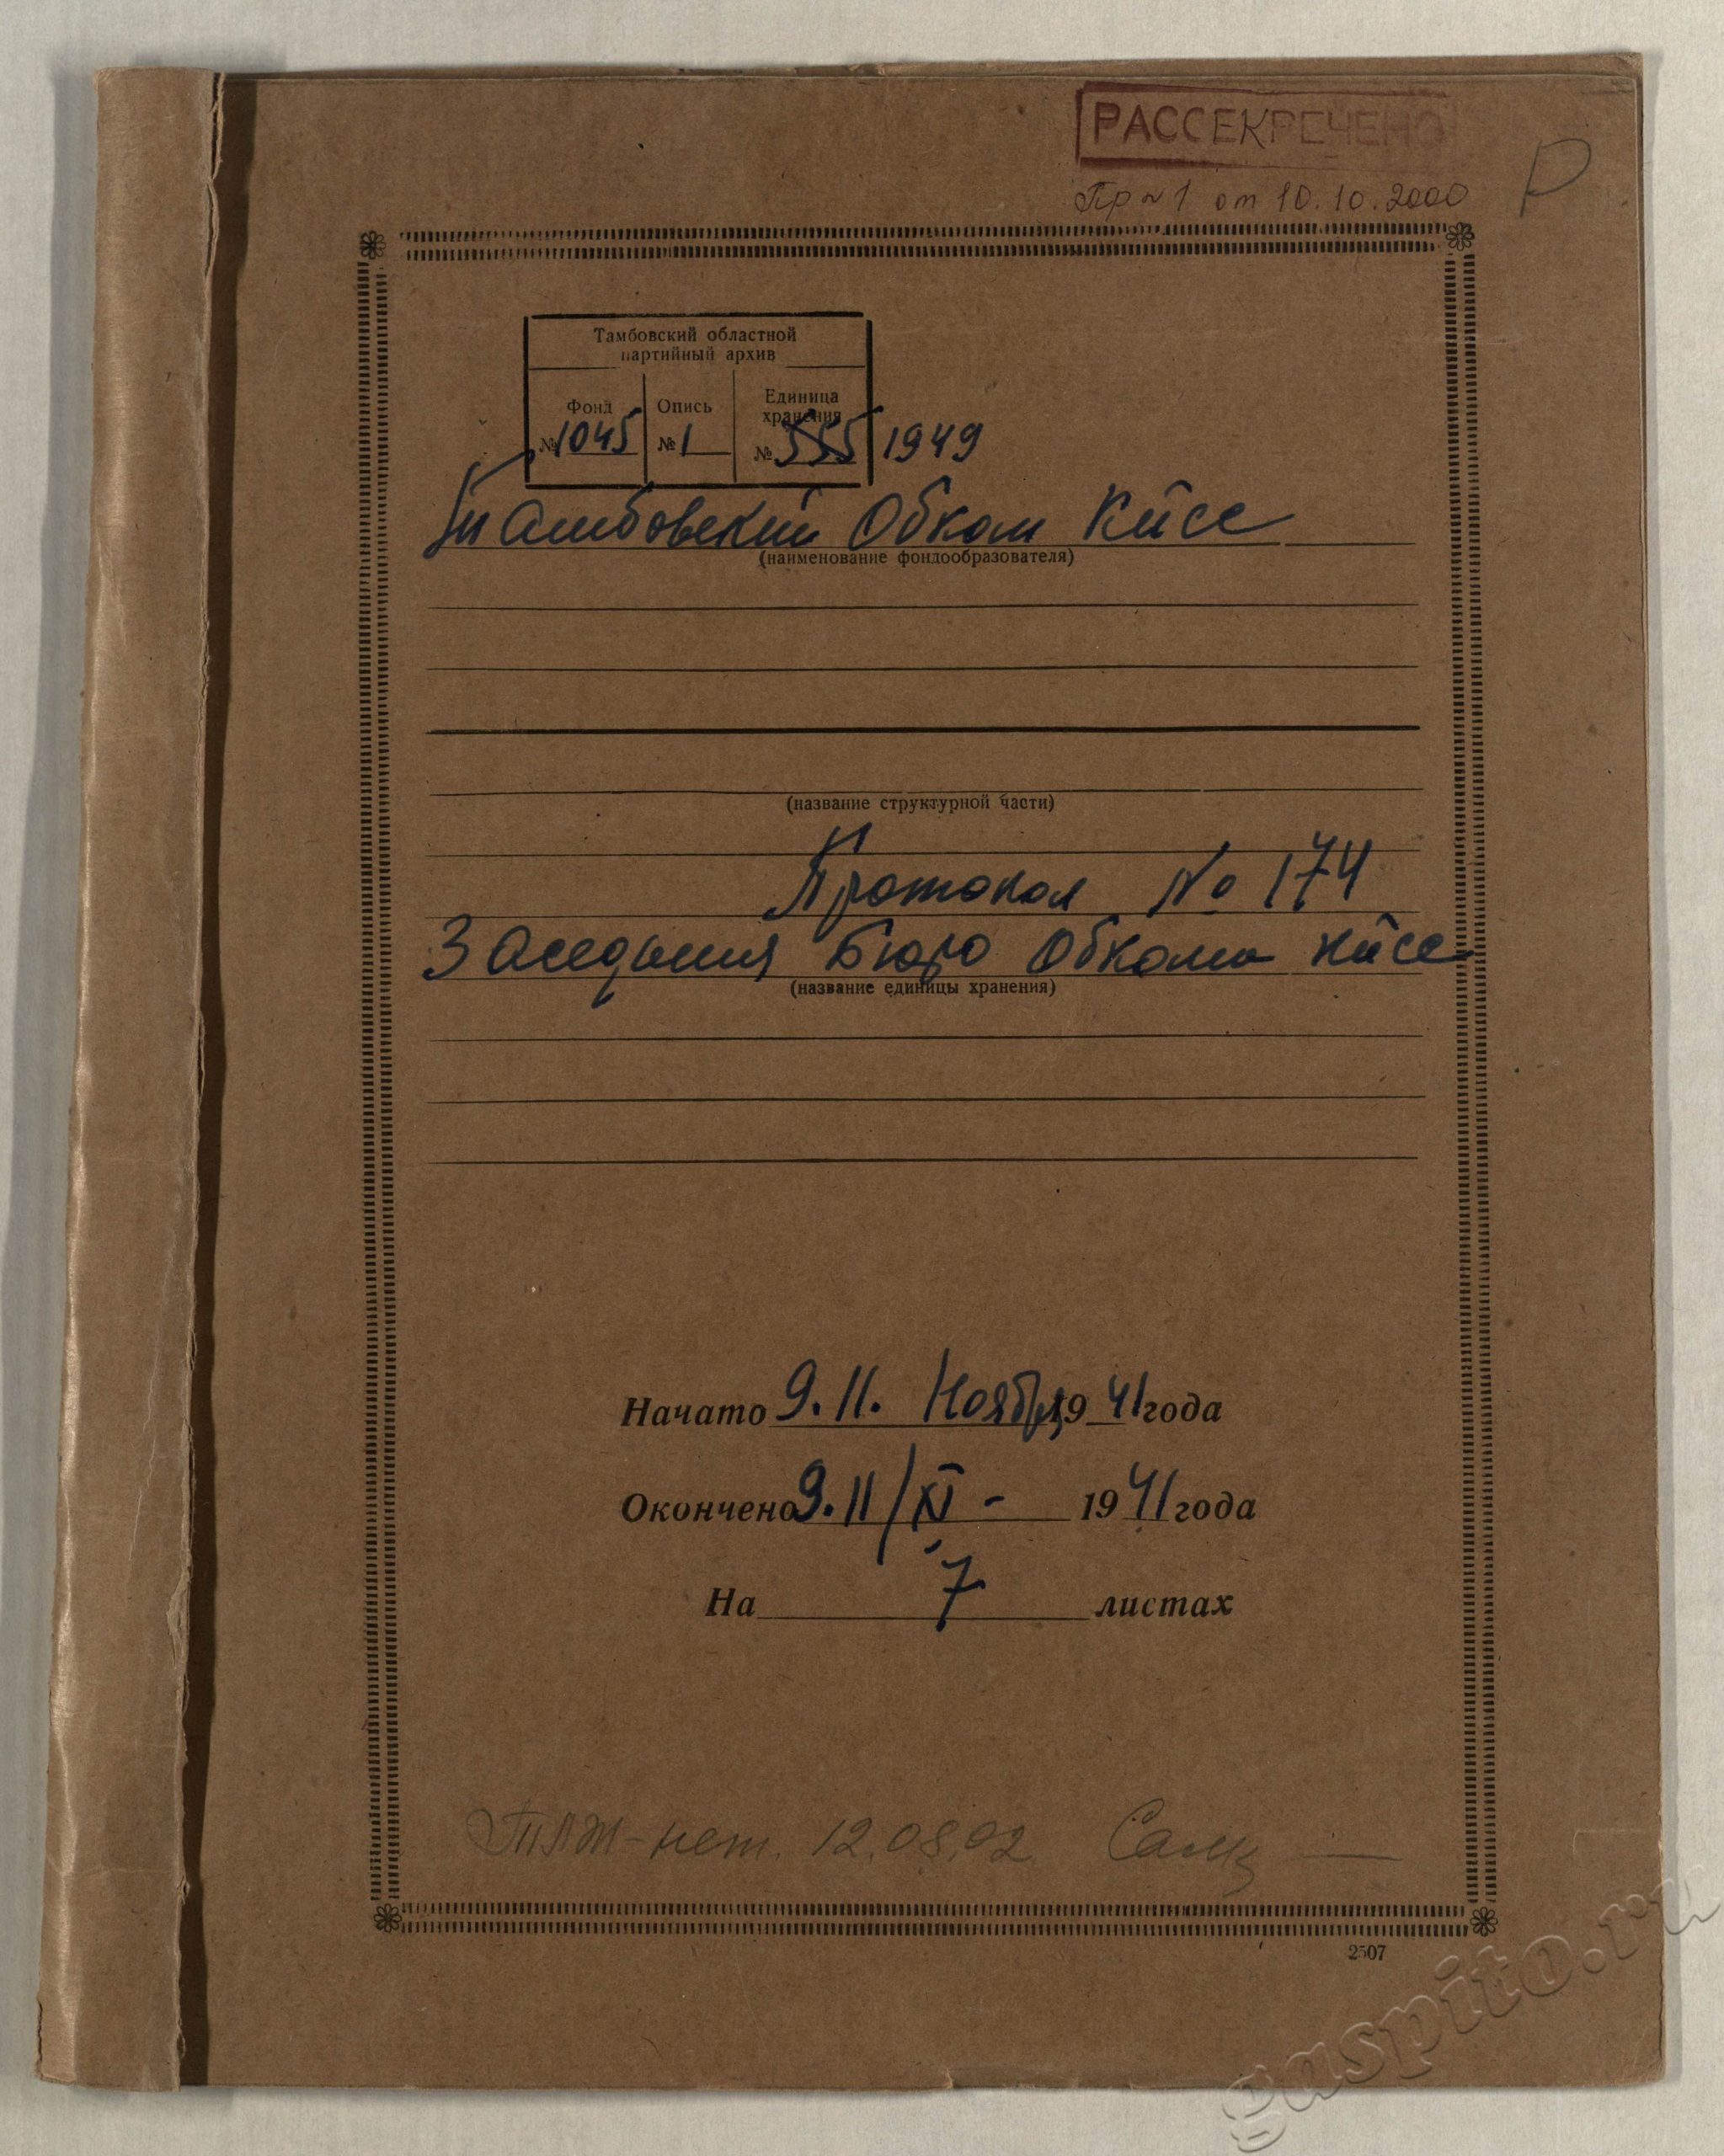 РАССЕКРЕЧЕНО
Пр №1 от 10.10.2000
Р
Тамбовский областной
партийный архив
Фонд Опись Единица хранения
№ 1045 № 1 № 555 1949
Тамбовский Обком КПСС
(наименование фондообразователя)
(название структурной части)
Протокол № 174
Заседания Бюро Обкома КПСС
(название единицы хранения)
Начато 9.11. Ноября 1941 года
Окончено 9.11/XI - 1941 года
На 7 листах
нет. 12.08.02
2507
gaspito.ru